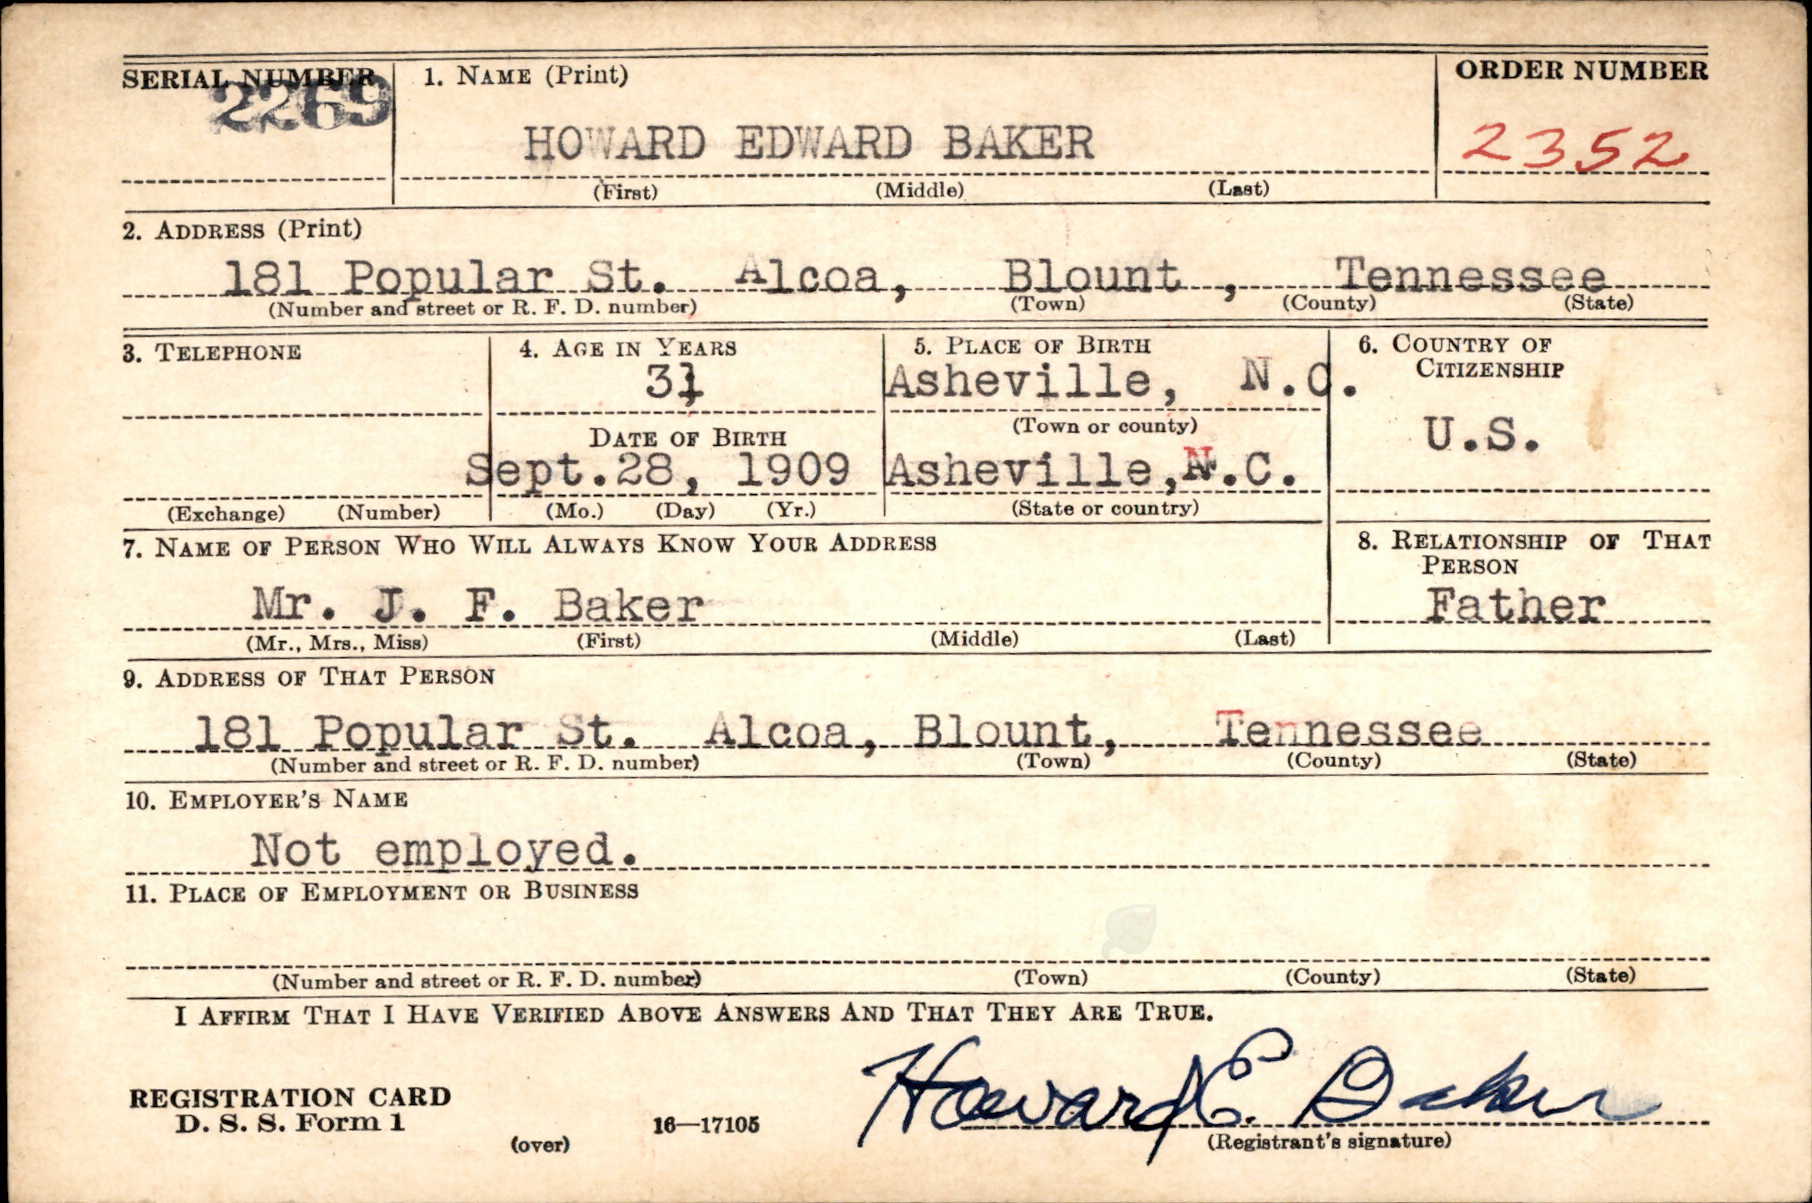 SERIAL NUMBER 1. NAME (Print) ORDER NUMBER
2269 HOWARD EDWARD BAKER 2352
(First) (Middle) (Last)
2. ADDRESS (Print)
181 Popular St. Alcoa, Blount , Tennessee
(Number and street or R. F. D. number) (Town) (County) (State)
3. TELEPHONE 4. AGE IN YEARS 5. PLACE OF BIRTH 6. COUNTRY OF CITIZENSHIP
31 Asheville, N.C.
(Town or county) U.S.
DATE OF BIRTH
Sept.28, 1909 Asheville,N.C.
(Exchange) (Number) (Mo.) (Day) (Yr.) (State or country)
7. NAME OF PERSON WHO WILL ALWAYS KNOW YOUR ADDRESS 8. RELATIONSHIP OF THAT PERSON
Mr. J. F. Baker Father
(Mr., Mrs., Miss) (First) (Middle) (Last)
9. ADDRESS OF THAT PERSON
181 Popular St. Alcoa, Blount, Tennessee
(Number and street or R. F. D. number) (Town) (County) (State)
10. EMPLOYER'S NAME
Not employed.
11. PLACE OF EMPLOYMENT OR BUSINESS
(Number and street or R. F. D. number) (Town) (County) (State)
I AFFIRM THAT I HAVE VERIFIED ABOVE ANSWERS AND THAT THEY ARE TRUE.
Howard E. Baker
REGISTRATION CARD
D. S. S. Form 1 (over) 16—17105 (Registrant's signature)